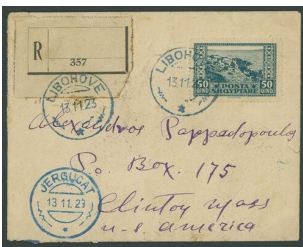 R
357
LIBOHOVË
13.11.23
LIBOHOVË
13.11.23
50 50
POSTA
SHQYPTARE
Alexandros Pappadopoulos
P.o. Box. 175
Clinton Mass
u-s. america
JERGUCAT
13 11 23